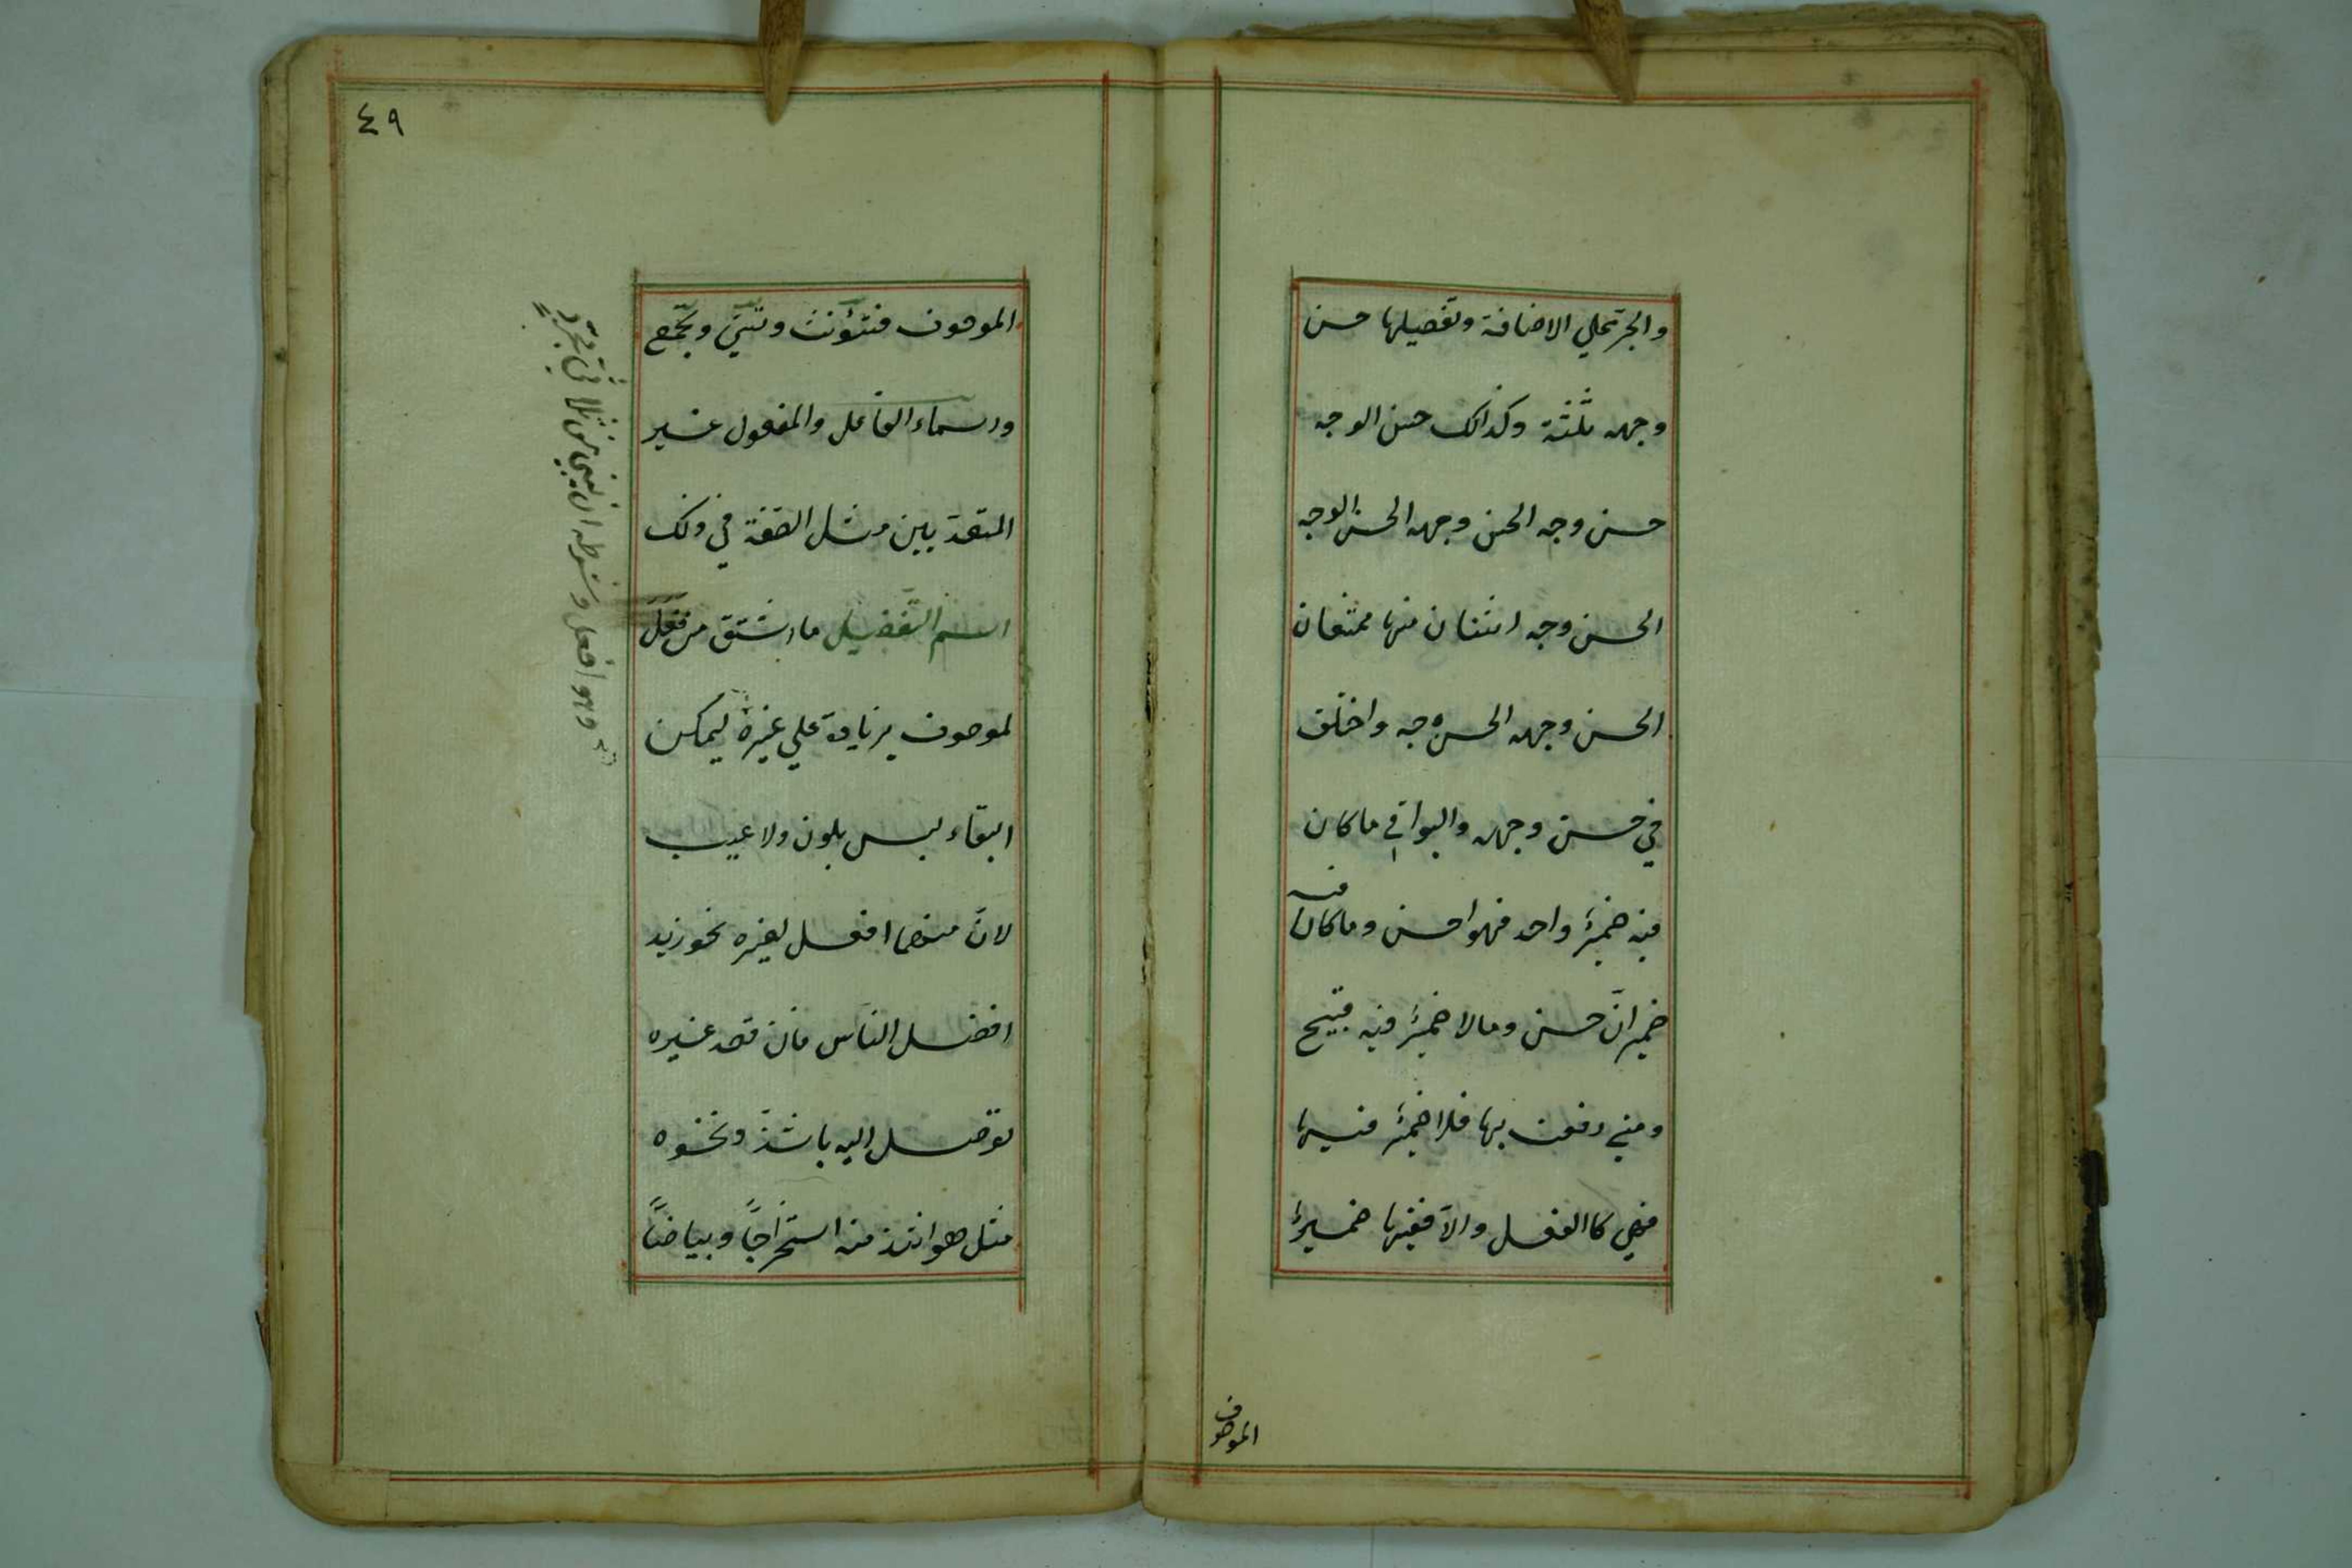 والجرّ علي الاضافة وتفصيلها حسن
وجهه ثلثة وكذالك حسن الوجه
حسن وجه الحسن وجهه الحسن الوجه
الحسن وجه اثنان منها ممتنعان
الحسن وجهه الحسن وجه واختلف
في حسن وجهه والبواقي ما كان
فيه ضميرٌ واحد فهو احسن وما كان فيه
ضميرانّ حسن ومالا ضميرٌ فيه قبيح
ومتي رفعت بها فلا ضميرٌ فيها
فهي كالفعل والّا ففيها ضميرٌ
الموصوف
٤٩
الموصوف فتؤنّث وتثنّي وتجّمع
واسماء الفاعل والمفعول غير
المتعدّيين مثل الصّفة في ذلك
اسم التّفضيل ما اشتق من فعل
لموصوف بزيادة علي غيره ليمكن
البقاء ليس بلون ولا عيب
لانّ منهما افعل لغيره نحو زيد
افضل النّاس فان قصد غيره
توصّل اليه باشدّ ونحوه
مثل هو اشد منه استخراجاً وبياضاً
وهو افعل وشرطه ان يبني من ثلاثي مجرّدٍ